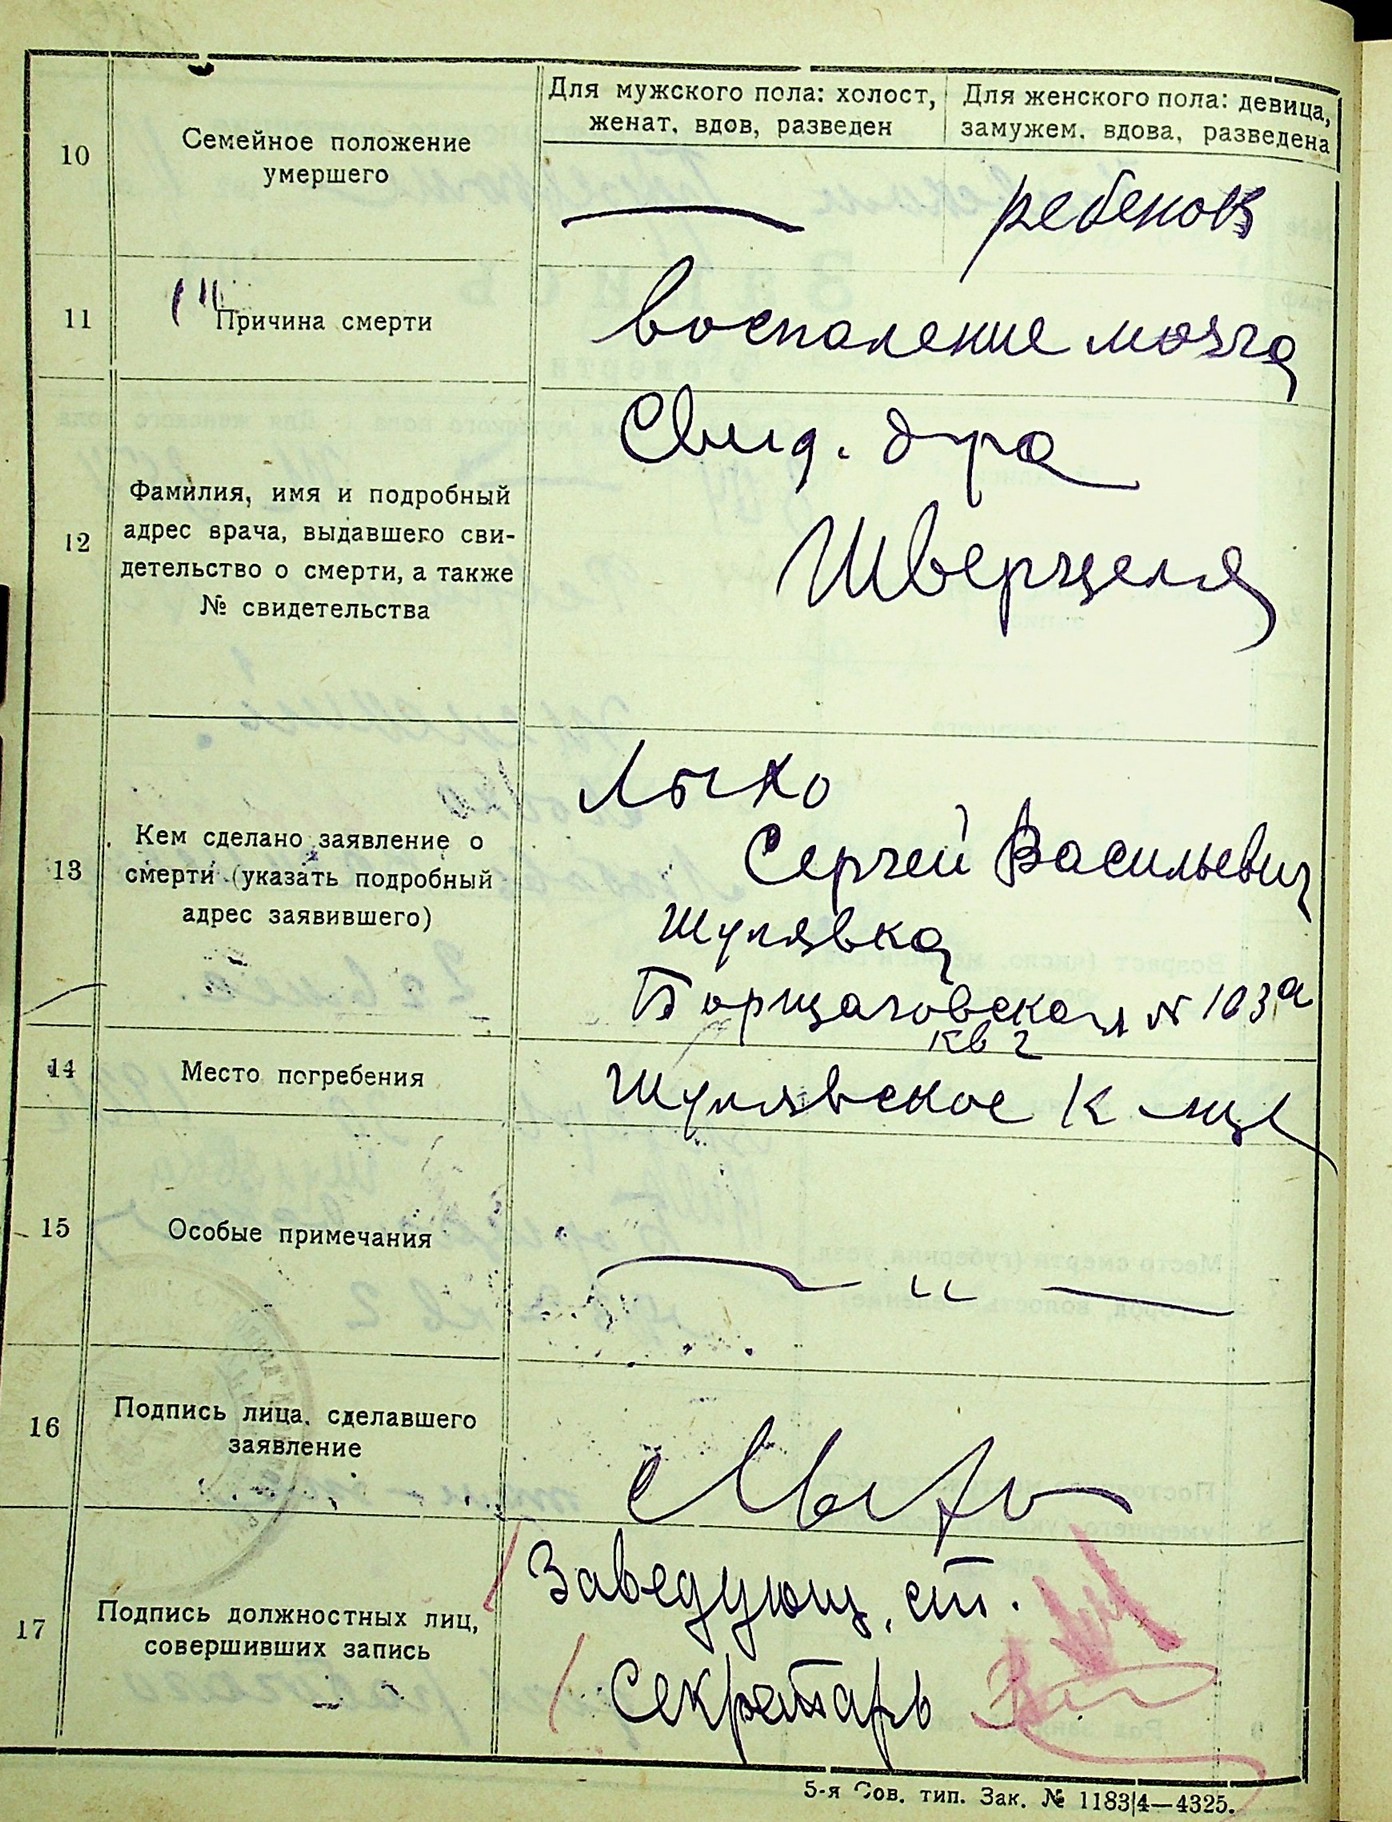 10
Семейное положение
умершего
Для мужского пола: холост,
женат, вдов, разведен
Для женского пола: девица,
замужем, вдова, разведена
ребенок
11
Причина смерти
воспаление мозга
12
Фамилия, имя и подробный
адрес врача, выдавшего сви-
детельство о смерти, а также
№ свидетельства
Свид. д-ра
Шверцеля
13
Кем сделано заявление о
смерти (указать подробный
адрес заявившего)
Лыхо
Сергей Васильевич
Шулявка
Борщаговская № 103а
кв 2
14
Место погребения
Шулявское к-ще
15
Особые примечания
— " —
16
Подпись лица, сделавшего
заявление
СЛыхо
17
Подпись должностных лиц,
совершивших запись
Заведующ. ст.
Секретарь
5-я Сов. тип. Зак. № 1183/4—4325.